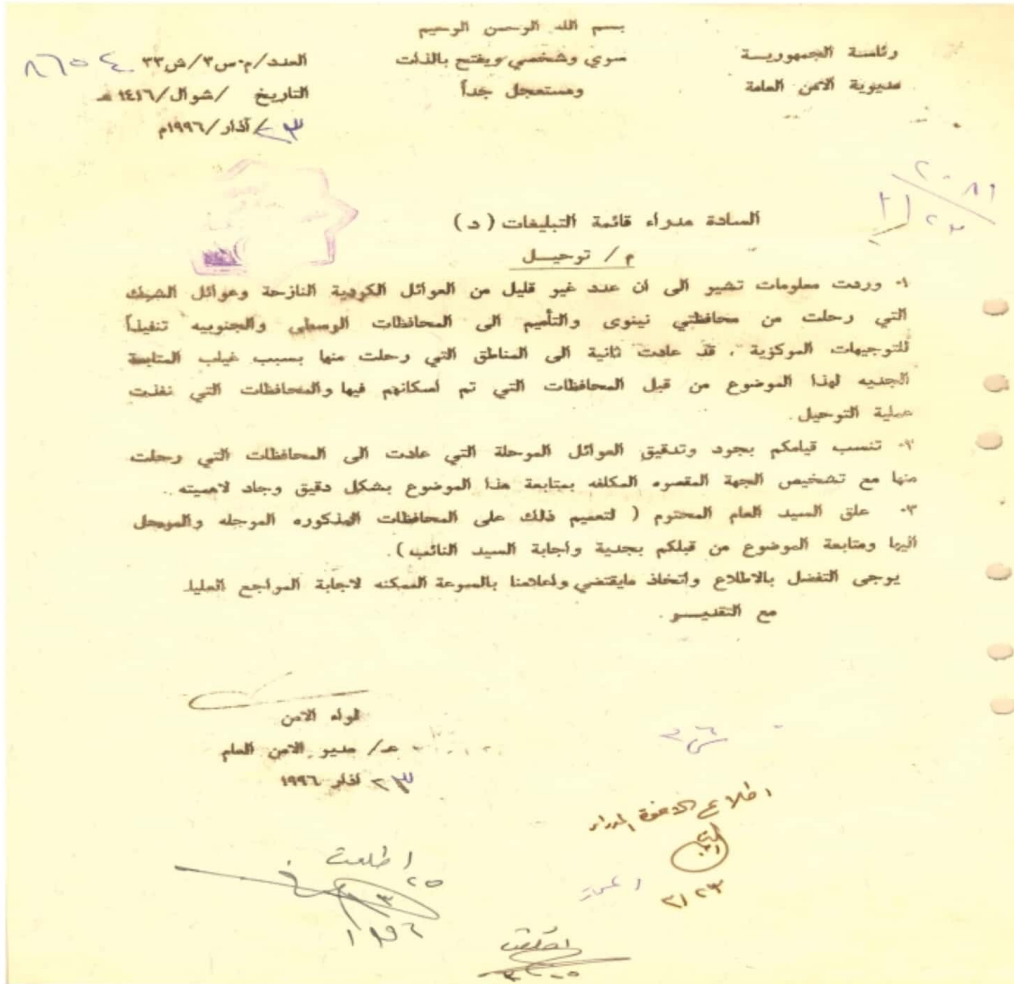 بسم الله الرحمن الرحيم
رئاسة الجمهورية
مديرية الامن العامة
سري وشخصي ويفتح بالذات
ومستعجل جداً
العدد/م.س٣/ش٣٣ ٨٦٥٤
التاريخ /شوال/١٤١٦هـ
٢٣/آذار/١٩٩٦م
السادة مدراء قائمة التبليغات (د)
م/ ترحيل
١- وردت معلومات تشير الى ان عدد غير قليل من العوائل الكردية النازحة وعوائل الشبك
التي رحلت من محافظتي نينوى والتأميم الى المحافظات الوسطى والجنوبيه تنفيذاً
للتوجيهات المركزية . قد عادت ثانية الى المناطق التي رحلت منها بسبب غياب المتابعة
الجديه لهذا الموضوع من قبل المحافظات التي تم اسكانهم فيها والمحافظات التي نفذت
عملية الترحيل .
٢- تنسب قيامكم بجرد وتدقيق العوائل المرحلة التي عادت الى المحافظات التي رحلت
منها مع تشخيص الجهة المقصره المكلفه بمتابعة هذا الموضوع بشكل دقيق وجاد لاهميته .
٣- علق السيد العام المحترم ( لتعميم ذلك على المحافظات المذكوره المرحله والمرحل
اليها ومتابعة الموضوع من قبلكم بجدية واجابة السيد النائب ) .
يرجى التفضل بالاطلاع واتخاذ مايقتضي واعلامنا بالسرعة الممكنه لاجابة المراجع العليا
مع التقديـر .
لواء الامن
عـ/ مدير الامن العام
٢٣ اذار ١٩٩٦
اطلاع الاخوة المدراء
٣/٢٣
اطلعت
٢٥
٣
١٩٩٦
اطلعت